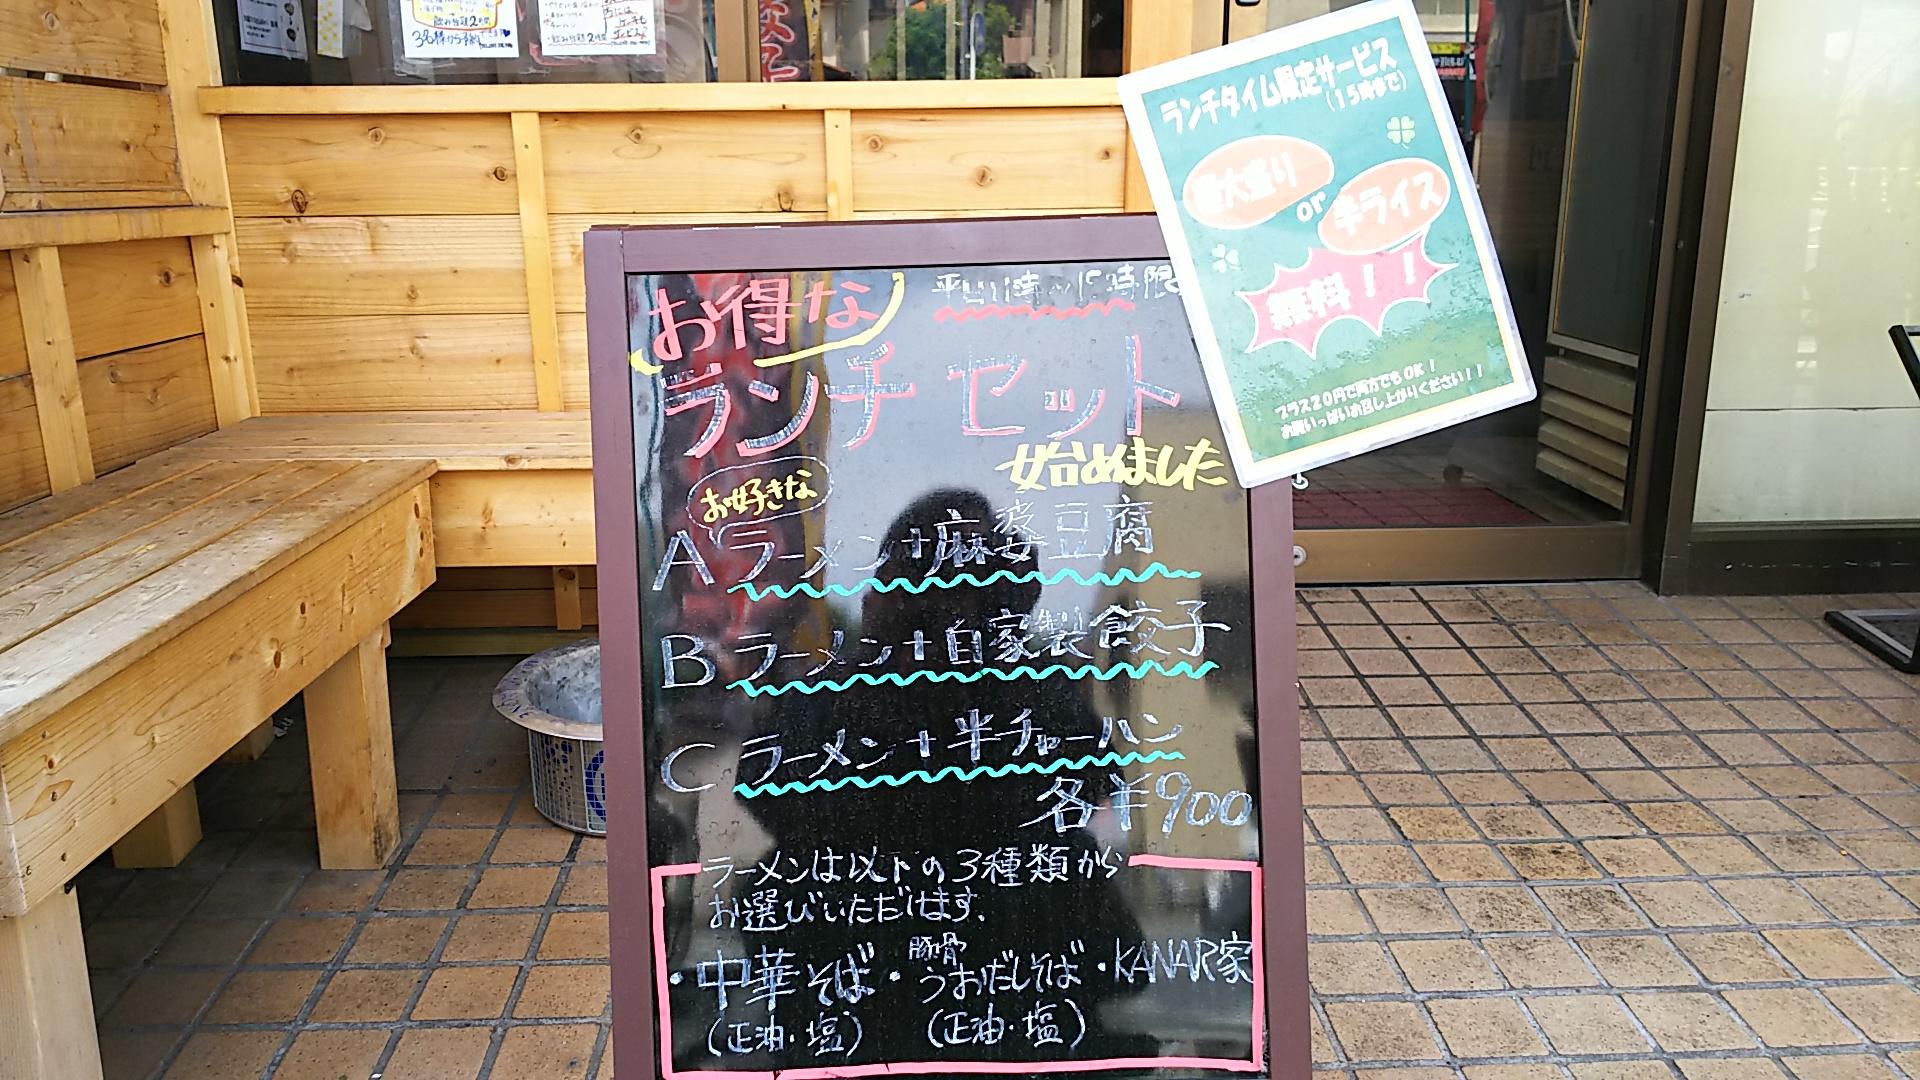 3名様から予約
飲み放題2時間
ランチタイム限定サービス
(15時まで)
麺大盛り
or
半ライス
無料!!
プラス20円で両方でもOK!
お腹いっぱいお召し上がりください!!
お得な
ランチセット
始めました
お好きな
A ラーメン+麻婆豆腐
B ラーメン+自家製餃子
C ラーメン+半チャーハン
各¥900
ラーメンは以下の3種類から
お選びいただけます.
・中華そば ・豚骨うおだしそば ・KANAR家
(正油・塩) (正油・塩)